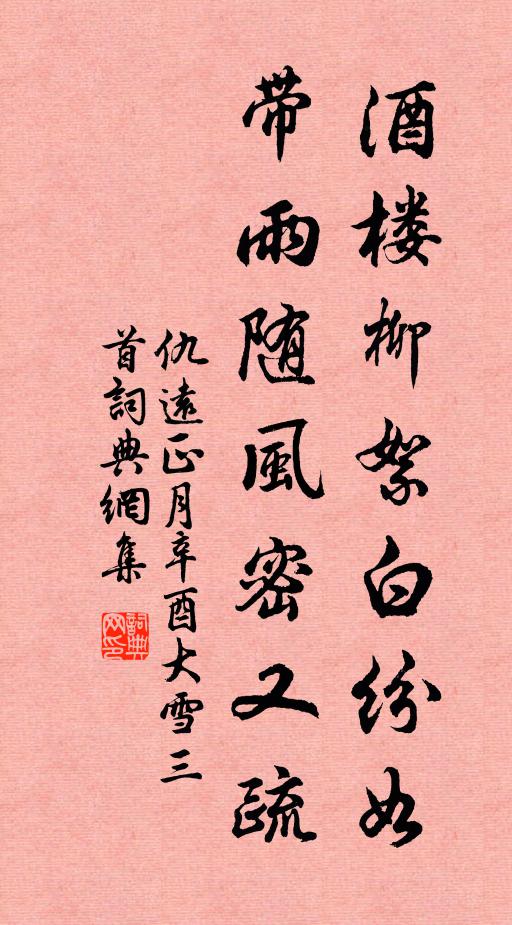 酒楼柳絮白纷如
带雨随風密又疏
仇遠正月辛酉大雪三
首詞典網集
詞典
网印